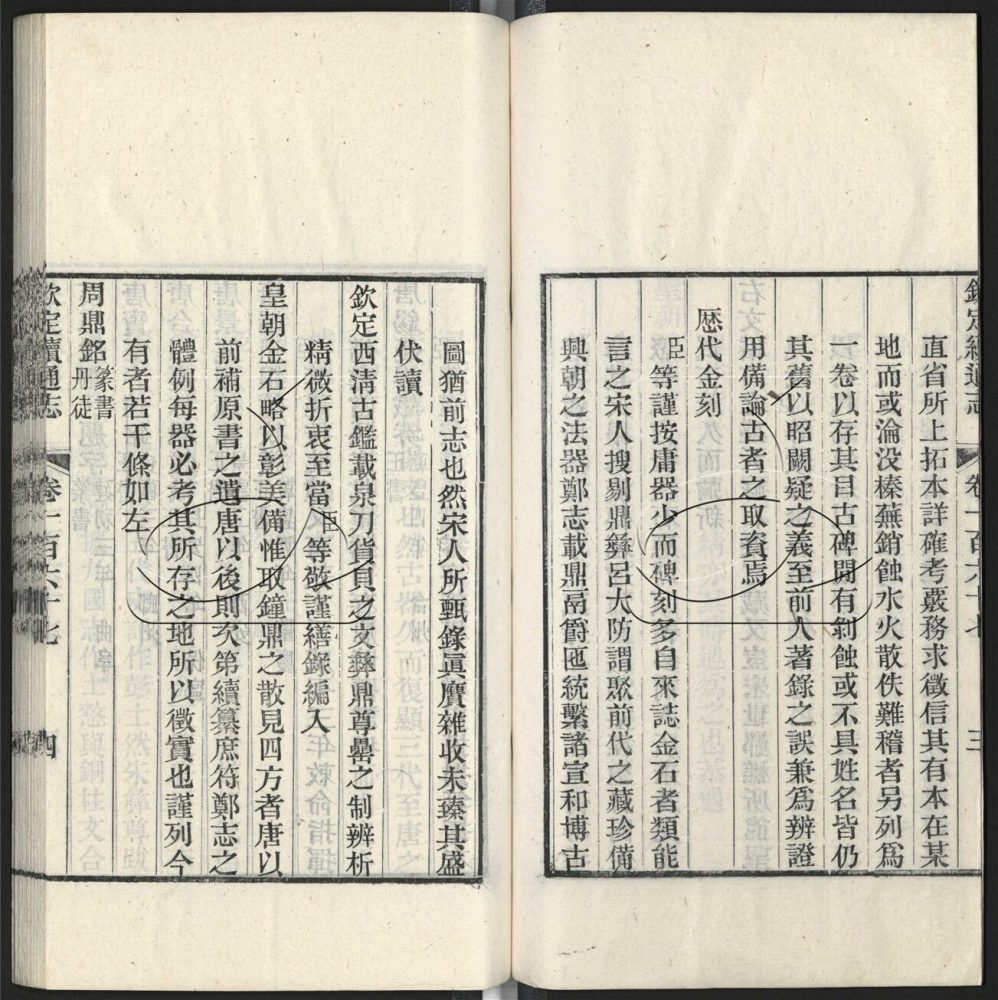 欽定續通志 卷一百六十七 三
直省所上拓本詳確考覈務求徵信其有本在某
地而或淪没榛蕪銷蝕水火散佚難稽者另列爲
一卷以存其目古碑閒有剝蝕或不具姓名皆仍
其舊以昭闕疑之義至前人著錄之誤兼爲辨證
用備論古者之取資焉
歷代金刻
臣等謹按庸器少而碑刻多自來誌金石者類能
言之宋人搜剔鼎彝呂大防謂聚前代之藏珍備
興朝之法器鄭志載鼎鬲爵匜統繫諸宣和博古
圖猶前志也然宋人所甄錄眞贗雜收未臻其盛
伏讀
欽定西清古鑑載泉刀貨貝之文彝鼎尊罍之制辨析
精微折衷至當臣等敬謹繕錄編入
皇朝金石略以彰美備惟取鐘鼎之散見四方者唐以
前補原書之遺唐以後則次第續纂庶符鄭志之
體例每器必考其所存之地所以徵實也謹列今
有者若干條如左
周鼎銘篆書丹徒
欽定續通志 卷一百六十七 四